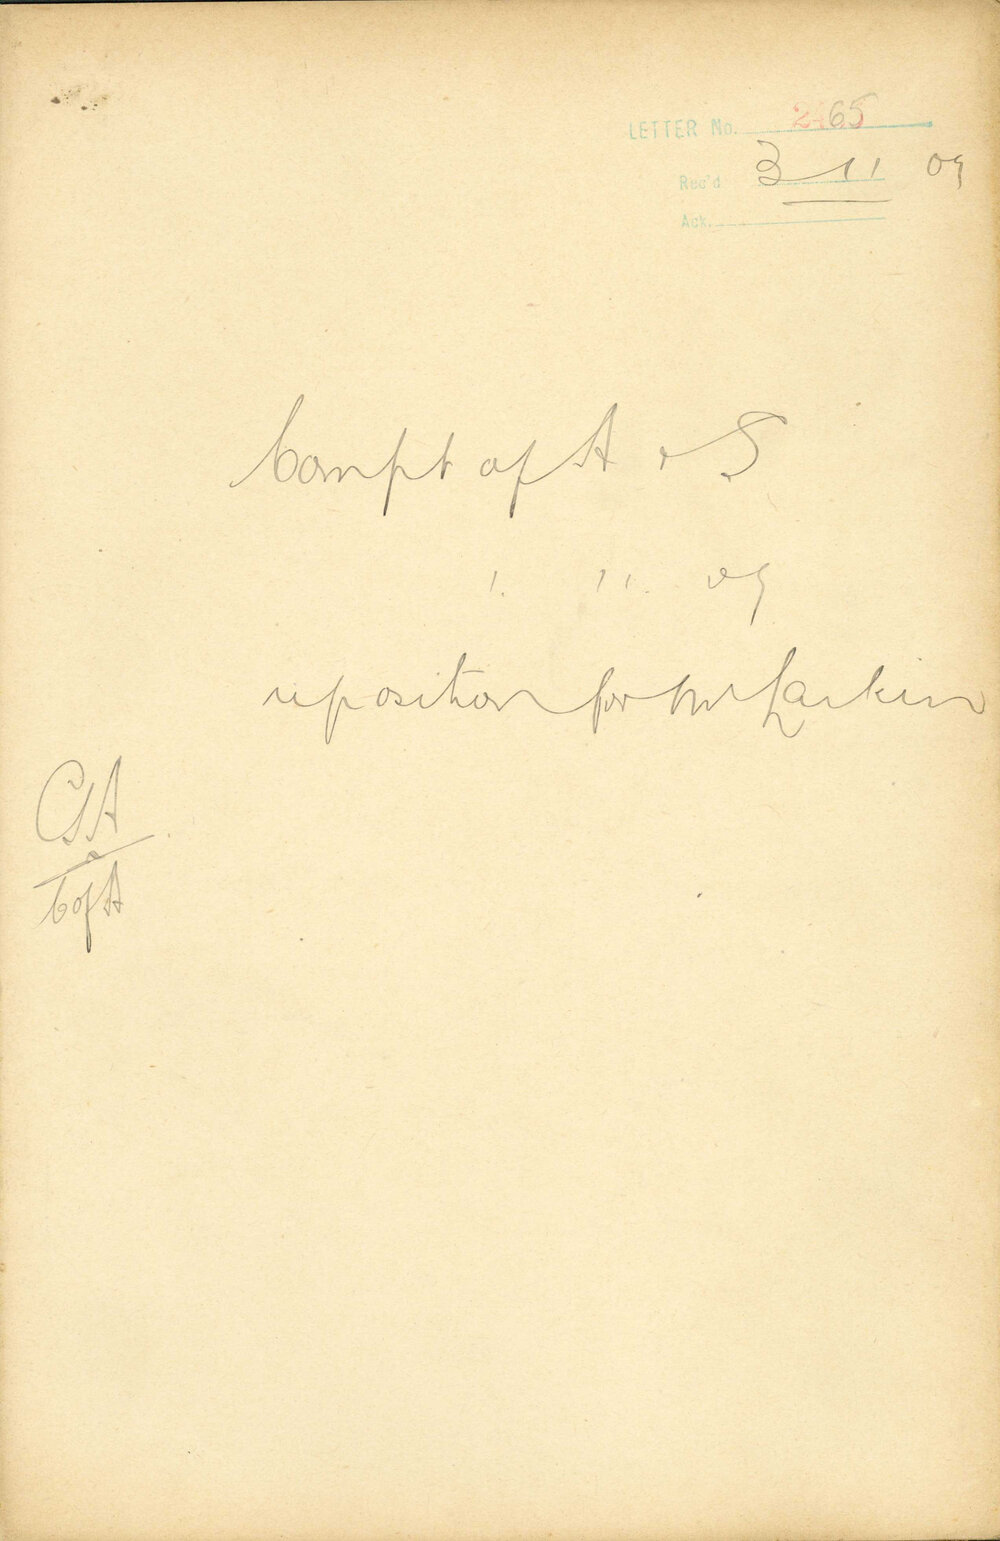 LETTER No. 2465
Rec'd 3 11 09
Ack.
Compt of A & S
1. 11. 09
re position for Mr Larkin
CSA
a
C of A